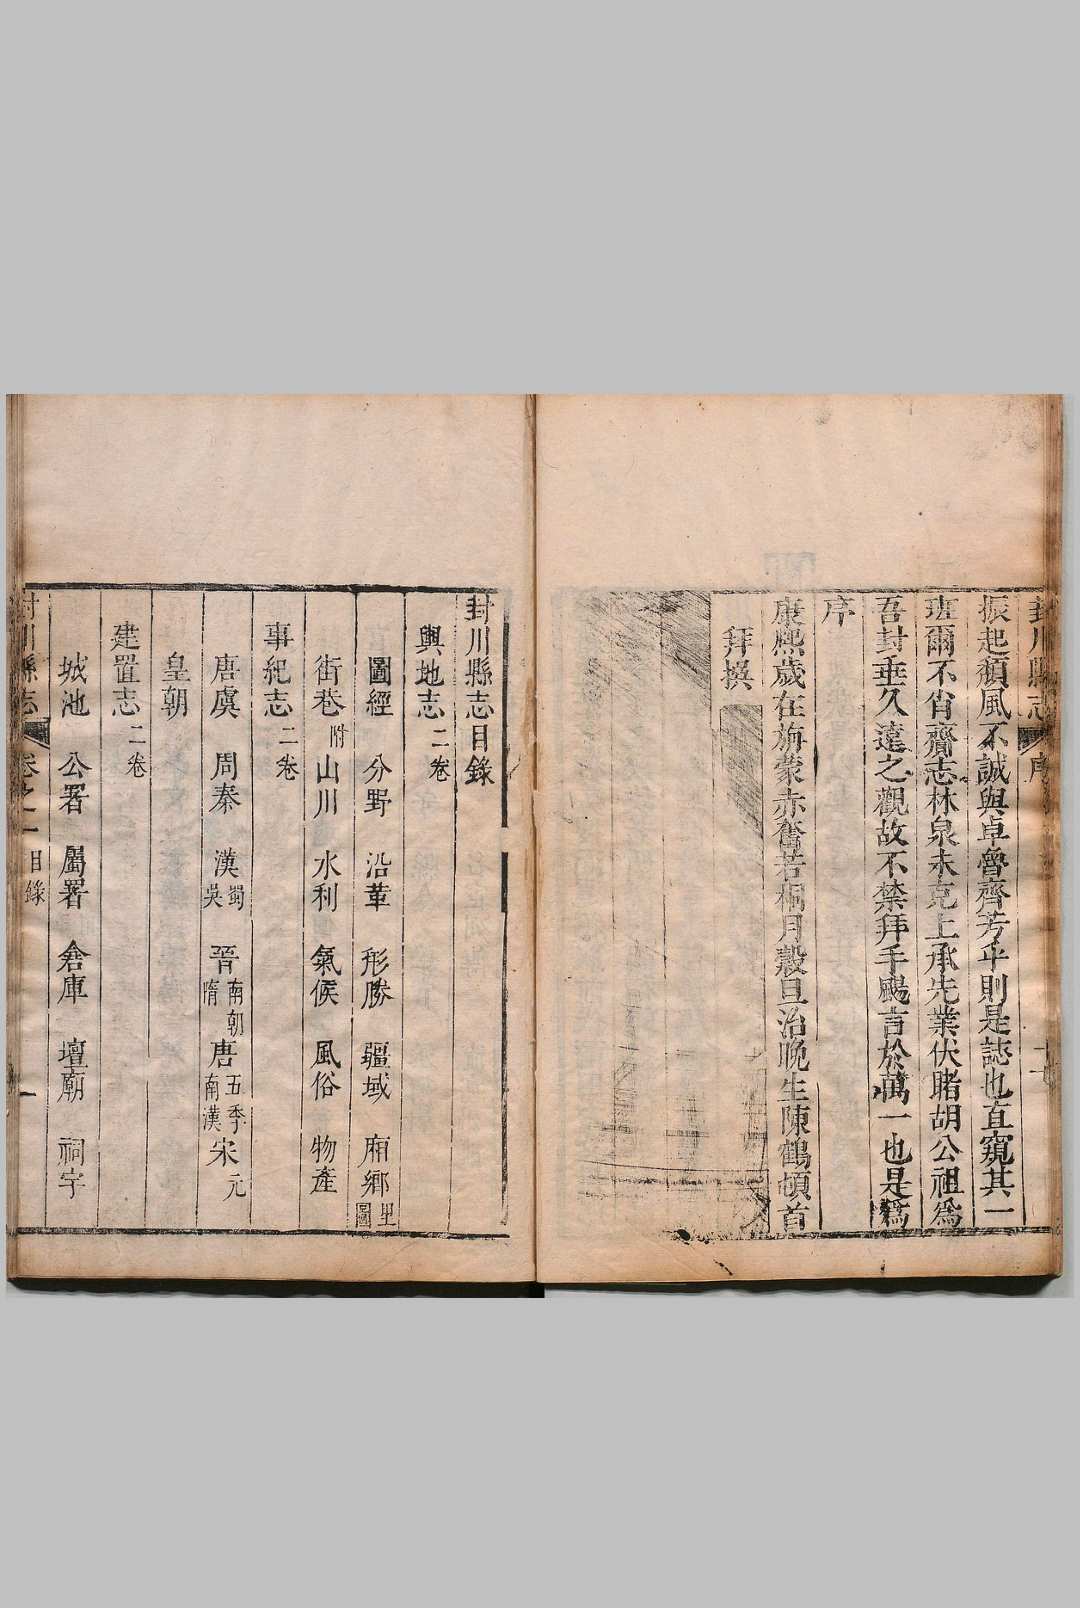 封川縣志 序 十一
振起頹風不誠與卓魯齊芳乎則是誌也直窺其一
班爾不肖齎志林泉未克上承先業伏睹胡公祖為
吾封垂久遠之觀故不禁拜手颺言於萬一也是為
序
康熙歲在旃蒙赤奮若桐月穀旦治晚生陳鶴頓首
拜撰
封川縣志目錄
輿地志二卷
圖經 分野 沿革 形勝 疆域 廂鄉里圖
街巷附 山川 水利 氣候 風俗 物產
事紀志二卷
唐虞 周秦 漢蜀吳 晉南朝隋 唐五季南漢 宋元
皇朝
建置志二卷
城池 公署 屬署 倉庫 壇廟 祠宇
封川縣志 卷之一 目錄 一